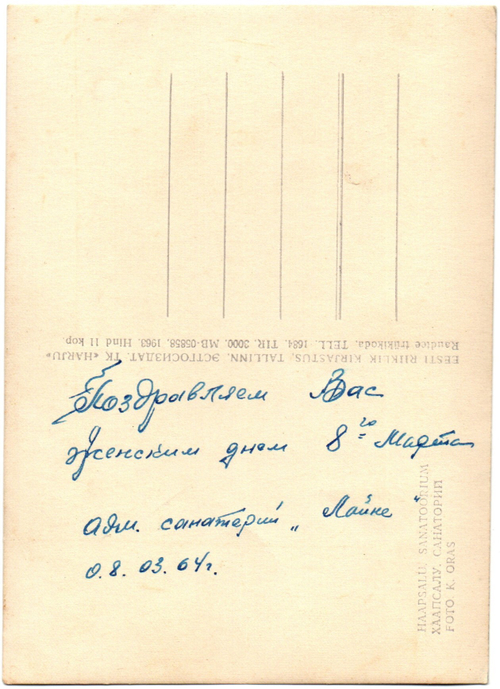 EESTI RIIKLIK KIRJASTUS, TALLINN, ЭСТГОСИЗДАТ. ТК «HARJU»
Raudtee trükikoda. TELL. 1684. TIR. 3000. MB-05858. 1963. Hind 11 kop.
Поздравляем Вас
женским днем 8го Марта
адм. санаторий „Лайне“
0.8. 03. 64г.
HAAPSALU. SANATOORIUM
ХААПСАЛУ. САНАТОРИЙ
FOTO K. ORAS